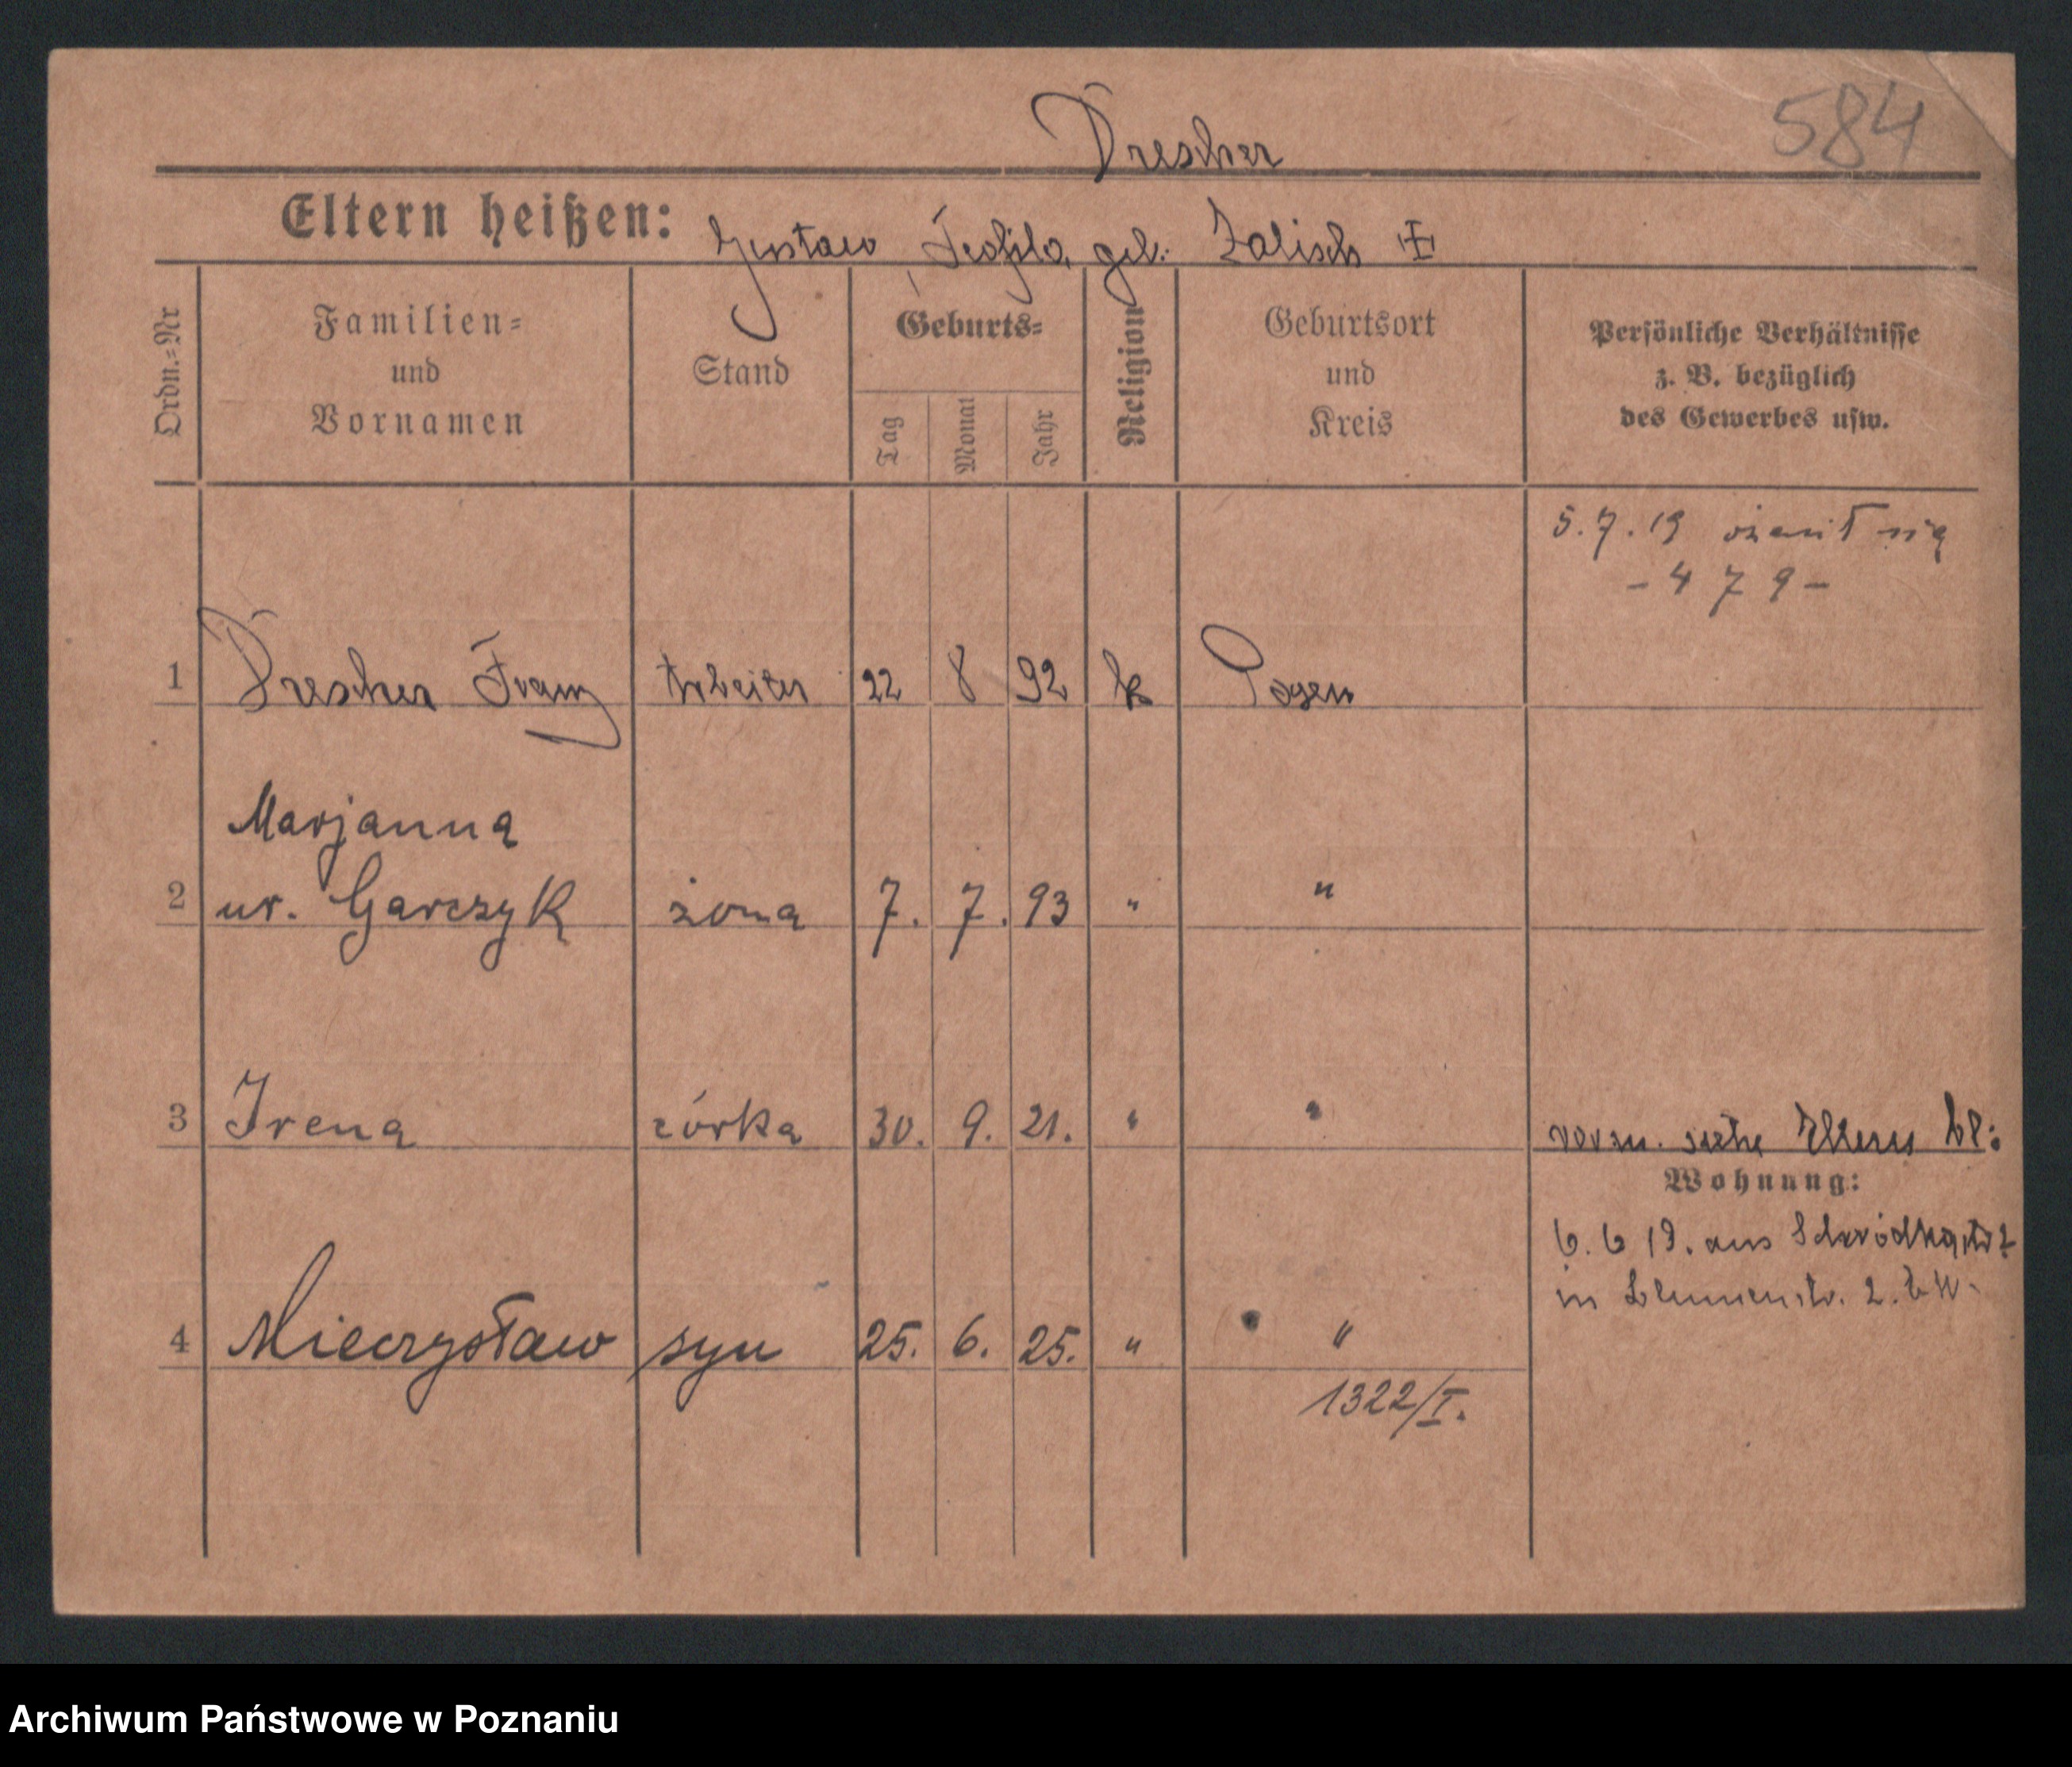 584
Drescher
Eltern heißen: Gustaw Teofila geb. Zalisch
Ordn.=Nr
Familien= und Vornamen
Stand
Geburts=
Tag Monat Jahr
Religion
Geburtsort und Kreis
Persönliche Verhältnisse
z. B. bezüglich
des Gewerbes usw.
5.7.19 ożenił się
- 479 -
1 Drescher Franz Arbeiter 22 8 92 k Posen
Marjanna
2 ur. Garczyk żona 7. 7. 93 " "
3 Irena córka 30. 9. 21. " "
vorm. siehe Eltern
Wohnung:
6. 6 19. aus Schrodka
in Blumenstr. 2.
4 Mieczysław syn 25. 6. 25. " "
1322/I.
Archiwum Państwowe w Poznaniu